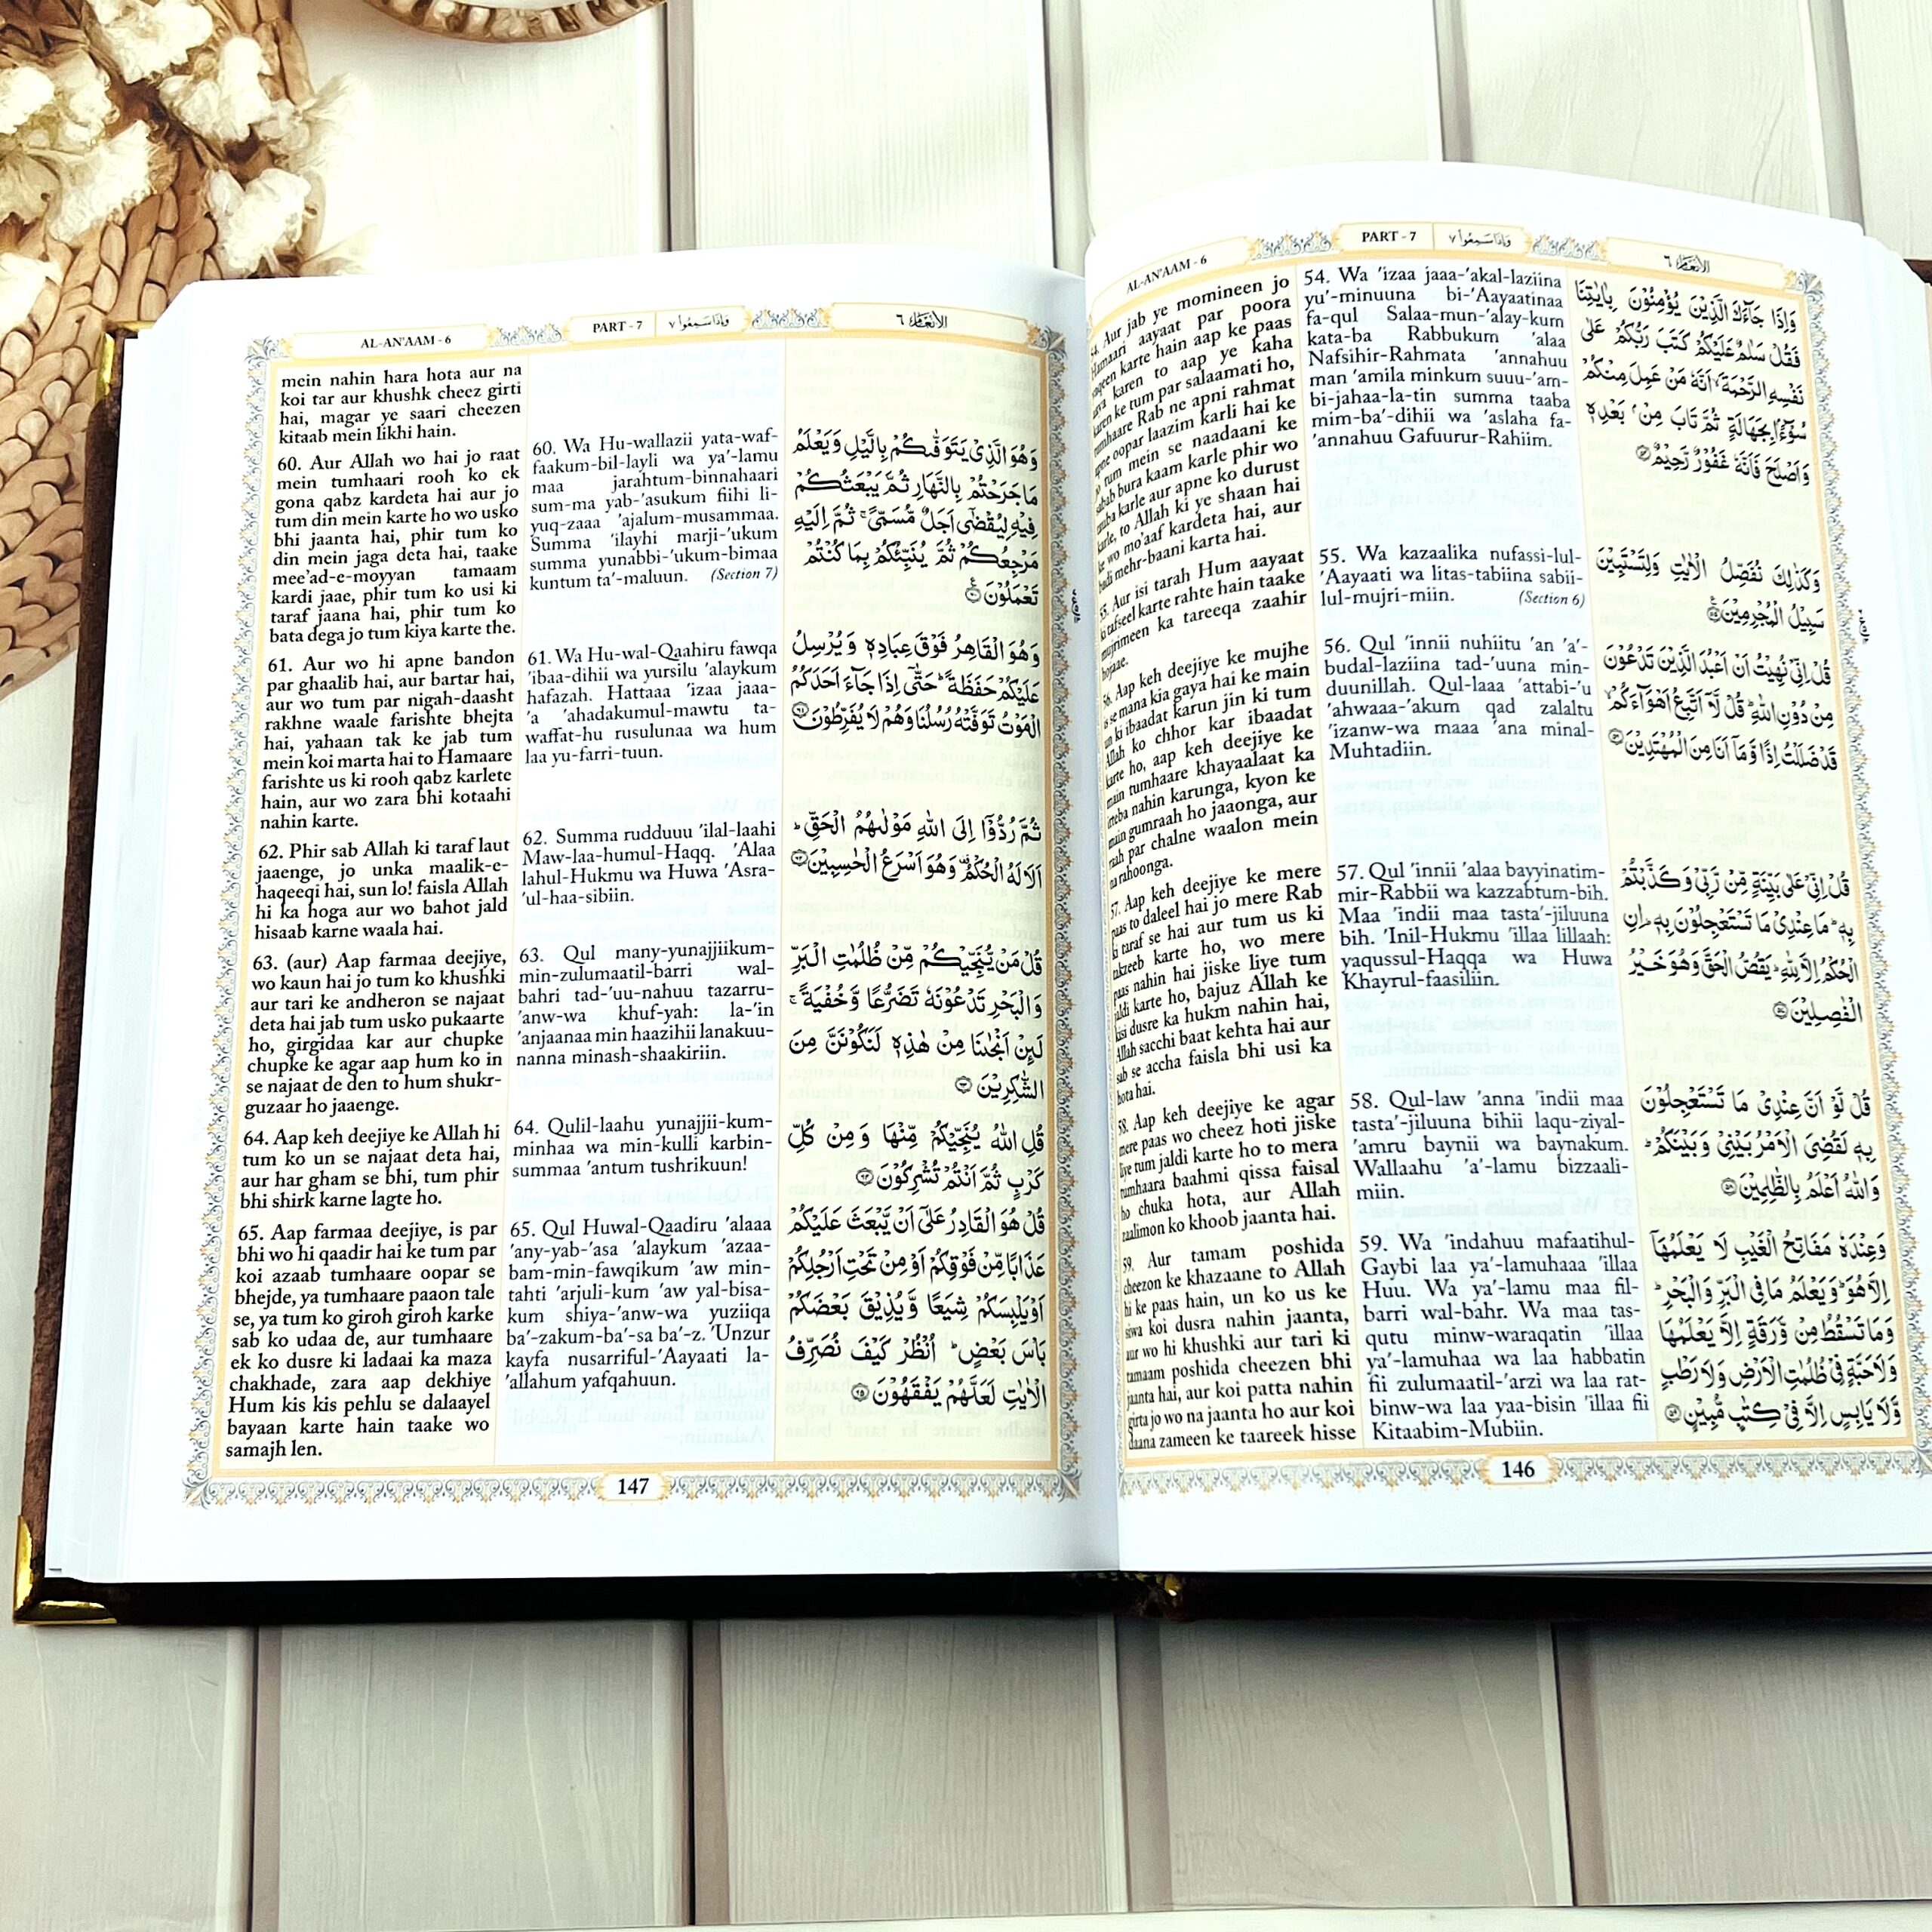 AL-AN'AAM - 6
PART - 7
وَاِذَا سَمِعُوْا ٧
الْاَنْعَام ٦
54. Aur jab ye momineen jo
Hamaari aayaat par poora
yaqeen karte hain aap ke paas
aaya karen to aap ye kaha
karen ke tum par salaamati ho,
tumhaare Rab ne apni rahmat
apne oopar laazim karli hai ke
jo tum mein se naadaani ke
sabab bura kaam karle phir wo
tauba karle aur apne ko durust
karle, to Allah ki ye shaan hai
ke wo mo'aaf kardeta hai, aur
badi mehr-baani karta hai.
55. Aur isi tarah Hum aayaat
ki tafseel karte rahte hain taake
mujrimeen ka tareeqa zaahir
hojaae.
56. Aap keh deejiye ke mujhe
is se mana kia gaya hai ke main
un ki ibaadat karun jin ki tum
Allah ko chhor kar ibaadat
karte ho, aap keh deejiye ke
main tumhaare khayaalaat ka
itteba nahin karunga, kyon ke
main gumraah ho jaaonga, aur
raah par chalne waalon mein
na rahoonga.
57. Aap keh deejiye ke mere
paas to daleel hai jo mere Rab
ki taraf se hai aur tum us ki
takzeeb karte ho, wo mere
paas nahin hai jiske liye tum
jaldi karte ho, bajuz Allah ke
kisi dusre ka hukm nahin hai,
Allah sacchi baat kehta hai aur
sab se accha faisla bhi usi ka
hota hai.
58. Aap keh deejiye ke agar
mere paas wo cheez hoti jiske
liye tum jaldi karte ho to mera
tumhaara baahmi qissa faisal
ho chuka hota, aur Allah
zaalimon ko khoob jaanta hai.
59. Aur tamam poshida
cheezon ke khazaane to Allah
hi ke paas hain, un ko us ke
siwa koi dusra nahin jaanta,
aur wo hi khushki aur tari ki
tamaam poshida cheezen bhi
jaanta hai, aur koi patta nahin
girta jo wo na jaanta ho aur koi
daana zameen ke taareek hisse
54. Wa 'izaa jaaa-'akal-laziina
yu'-minuuna bi-'Aayaatinaa
fa-qul Salaa-mun-'alay-kum
kata-ba Rabbukum 'alaa
Nafsihir-Rahmata 'annahuu
man 'amila minkum suuu-'am-
bi-jahaa-la-tin summa taaba
mim-ba'-dihii wa 'aslaha fa-
'annahuu Gafuurur-Rahiim.
55. Wa kazaalika nufassi-lul-
'Aayaati wa litas-tabiina sabii-
lul-mujri-miin. (Section 6)
56. Qul 'innii nuhiitu 'an 'a'-
budal-laziina tad-'uuna min-
duunillah. Qul-laaa 'attabi-'u
'ahwaaa-'akum qad zalaltu
'izanw-wa maaa 'ana minal-
Muhtadiin.
57. Qul 'innii 'alaa bayyinatim-
mir-Rabbii wa kazzabtum-bih.
Maa 'indii maa tasta'-jiluuna
bih. 'Inil-Hukmu 'illaa lillaah:
yaqussul-Haqqa wa Huwa
Khayrul-faasiliin.
58. Qul-law 'anna 'indii maa
tasta'-jiluuna bihii laqu-ziyal-
'amru baynii wa baynakum.
Wallaahu 'a'-lamu bizzaali-
miin.
59. Wa 'indahuu mafaatihul-
Gaybi laa ya'-lamuhaaa 'illaa
Huu. Wa ya'-lamu maa fil-
barri wal-bahr. Wa maa tas-
qutu minw-waraqatin 'illaa
ya'-lamuhaa wa laa habbatin
fii zulumaatil-'arzi wa laa rat-
binw-wa laa yaa-bisin 'illaa fii
Kitaabim-Mubiin.
وَاِذَا جَآءَكَ الَّذِيْنَ يُؤْمِنُوْنَ بِاٰيٰتِنَا
فَقُلْ سَلٰمٌ عَلَيْكُمْ كَتَبَ رَبُّكُمْ عَلٰى
نَفْسِهِ الرَّحْمَةَ ۙ اَنَّهٗ مَنْ عَمِلَ مِنْكُمْ
سُوْٓءًۢا بِجَهَالَةٍ ثُمَّ تَابَ مِنْۢ بَعْدِهٖ
وَاَصْلَحَ فَاَنَّهٗ غَفُوْرٌ رَّحِيْمٌ ۝٥٤
وَكَذٰلِكَ نُفَصِّلُ الْاٰيٰتِ وَلِتَسْتَبِيْنَ
سَبِيْلُ الْمُجْرِمِيْنَ ۝٥٥
قُلْ اِنِّيْ نُهِيْتُ اَنْ اَعْبُدَ الَّذِيْنَ تَدْعُوْنَ
مِنْ دُوْنِ اللّٰهِ ؕ قُلْ لَّاۤ اَتَّبِعُ اَهْوَآءَكُمْ ۙ
قَدْ ضَلَلْتُ اِذًا وَّمَاۤ اَنَا مِنَ الْمُهْتَدِيْنَ ۝٥٦
قُلْ اِنِّيْ عَلٰى بَيِّنَةٍ مِّنْ رَّبِّيْ وَكَذَّبْتُمْ
بِهٖ ؕ مَا عِنْدِيْ مَا تَسْتَعْجِلُوْنَ بِهٖ ؕ اِنِ
الْحُكْمُ اِلَّا لِلّٰهِ ؕ يَقُصُّ الْحَقَّ وَهُوَ خَيْرُ
الْفٰصِلِيْنَ ۝٥٧
قُلْ لَّوْ اَنَّ عِنْدِيْ مَا تَسْتَعْجِلُوْنَ
بِهٖ لَقُضِيَ الْاَمْرُ بَيْنِيْ وَبَيْنَكُمْ ؕ
وَاللّٰهُ اَعْلَمُ بِالظّٰلِمِيْنَ ۝٥٨
وَعِنْدَهٗ مَفَاتِحُ الْغَيْبِ لَا يَعْلَمُهَاۤ
اِلَّا هُوَ ؕ وَيَعْلَمُ مَا فِي الْبَرِّ وَالْبَحْرِ ؕ
وَمَا تَسْقُطُ مِنْ وَّرَقَةٍ اِلَّا يَعْلَمُهَا
وَلَا حَبَّةٍ فِيْ ظُلُمٰتِ الْاَرْضِ وَلَا رَطْبٍ
وَّلَا يَابِسٍ اِلَّا فِيْ كِتٰبٍ مُّبِيْنٍ ۝٥٩
146
AL-AN'AAM - 6
PART - 7
وَاِذَا سَمِعُوْا ٧
الْاَنْعَام ٦
mein nahin hara hota aur na
koi tar aur khushk cheez girti
hai, magar ye saari cheezen
kitaab mein likhi hain.
60. Aur Allah wo hai jo raat
mein tumhaari rooh ko ek
gona qabz kardeta hai aur jo
tum din mein karte ho wo usko
bhi jaanta hai, phir tum ko
din mein jaga deta hai, taake
mee'ad-e-moyyan tamaam
kardi jaae, phir tum ko usi ki
taraf jaana hai, phir tum ko
bata dega jo tum kiya karte the.
61. Aur wo hi apne bandon
par ghaalib hai, aur bartar hai,
aur wo tum par nigah-daasht
rakhne waale farishte bhejta
hai, yahaan tak ke jab tum
mein koi marta hai to Hamaare
farishte us ki rooh qabz karlete
hain, aur wo zara bhi kotaahi
nahin karte.
62. Phir sab Allah ki taraf laut
jaaenge, jo unka maalik-e-
haqeeqi hai, sun lo! faisla Allah
hi ka hoga aur wo bahot jald
hisaab karne waala hai.
63. (aur) Aap farmaa deejiye,
wo kaun hai jo tum ko khushki
aur tari ke andheron se najaat
deta hai jab tum usko pukaarte
ho, girgidaa kar aur chupke
chupke ke agar aap hum ko in
se najaat de den to hum shukr-
guzaar ho jaaenge.
64. Aap keh deejiye ke Allah hi
tum ko un se najaat deta hai,
aur har gham se bhi, tum phir
bhi shirk karne lagte ho.
65. Aap farmaa deejiye, is par
bhi wo hi qaadir hai ke tum par
koi azaab tumhaare oopar se
bhejde, ya tumhaare paaon tale
se, ya tum ko giroh giroh karke
sab ko udaa de, aur tumhaare
ek ko dusre ki ladaai ka maza
chakhade, zara aap dekhiye
Hum kis kis pehlu se dalaayel
bayaan karte hain taake wo
samajh len.
60. Wa Hu-wallazii yata-waf-
faakum-bil-layli wa ya'-lamu
maa jarahtum-binnahaari
sum-ma yab-'asukum fiihi li-
yuq-zaaa 'ajalum-musammaa.
Summa 'ilayhi marji-'ukum
summa yunabbi-'ukum-bimaa
kuntum ta'-maluun. (Section 7)
61. Wa Hu-wal-Qaahiru fawqa
'ibaa-dihii wa yursilu 'alaykum
hafazah. Hattaaa 'izaa jaaa-
'a 'ahadakumul-mawtu ta-
waffat-hu rusulunaa wa hum
laa yu-farri-tuun.
62. Summa rudduuu 'ilal-laahi
Maw-laa-humul-Haqq. 'Alaa
lahul-Hukmu wa Huwa 'Asra-
'ul-haa-sibiin.
63. Qul many-yunajjiikum-
min-zulumaatil-barri wal-
bahri tad-'uu-nahuu tazarru-
'anw-wa khuf-yah: la-'in
'anjaanaa min haazihii lanakuu-
nanna minash-shaakiriin.
64. Qulil-laahu yunajjii-kum-
minhaa wa min-kulli karbin-
summaa 'antum tushrikuun!
65. Qul Huwal-Qaadiru 'alaaa
'any-yab-'asa 'alaykum 'azaa-
bam-min-fawqikum 'aw min-
tahti 'arjuli-kum 'aw yal-bisa-
kum shiya-'anw-wa yuziiqa
ba'-zakum-ba'-sa ba'-z. 'Unzur
kayfa nusarriful-'Aayaati la-
'allahum yafqahuun.
وَهُوَ الَّذِيْ يَتَوَفّٰىكُمْ بِالَّيْلِ وَيَعْلَمُ
مَا جَرَحْتُمْ بِالنَّهَارِ ثُمَّ يَبْعَثُكُمْ
فِيْهِ لِيُقْضٰٓى اَجَلٌ مُّسَمًّى ۚ ثُمَّ اِلَيْهِ
مَرْجِعُكُمْ ثُمَّ يُنَبِّئُكُمْ بِمَا كُنْتُمْ
تَعْمَلُوْنَ ۝٦٠
وَهُوَ الْقَاهِرُ فَوْقَ عِبَادِهٖ وَيُرْسِلُ
عَلَيْكُمْ حَفَظَةً ؕ حَتّٰٓى اِذَا جَآءَ اَحَدَكُمُ
الْمَوْتُ تَوَفَّتْهُ رُسُلُنَا وَهُمْ لَا يُفَرِّطُوْنَ ۝٦١
ثُمَّ رُدُّوْۤا اِلَى اللّٰهِ مَوْلٰىهُمُ الْحَقِّ ؕ
اَلَا لَهُ الْحُكْمُ ۫ وَهُوَ اَسْرَعُ الْحٰسِبِيْنَ ۝٦٢
قُلْ مَنْ يُّنَجِّيْكُمْ مِّنْ ظُلُمٰتِ الْبَرِّ
وَالْبَحْرِ تَدْعُوْنَهٗ تَضَرُّعًا وَّخُفْيَةً ۚ
لَىِٕنْ اَنْجٰىنَا مِنْ هٰذِهٖ لَنَكُوْنَنَّ مِنَ
الشّٰكِرِيْنَ ۝٦٣
قُلِ اللّٰهُ يُنَجِّيْكُمْ مِّنْهَا وَمِنْ كُلِّ
كَرْبٍ ثُمَّ اَنْتُمْ تُشْرِكُوْنَ ۝٦٤
قُلْ هُوَ الْقَادِرُ عَلٰٓى اَنْ يَّبْعَثَ عَلَيْكُمْ
عَذَابًا مِّنْ فَوْقِكُمْ اَوْ مِنْ تَحْتِ اَرْجُلِكُمْ
اَوْ يَلْبِسَكُمْ شِيَعًا وَّيُذِيْقَ بَعْضَكُمْ
بَاْسَ بَعْضٍ ؕ اُنْظُرْ كَيْفَ نُصَرِّفُ
الْاٰيٰتِ لَعَلَّهُمْ يَفْقَهُوْنَ ۝٦٥
147